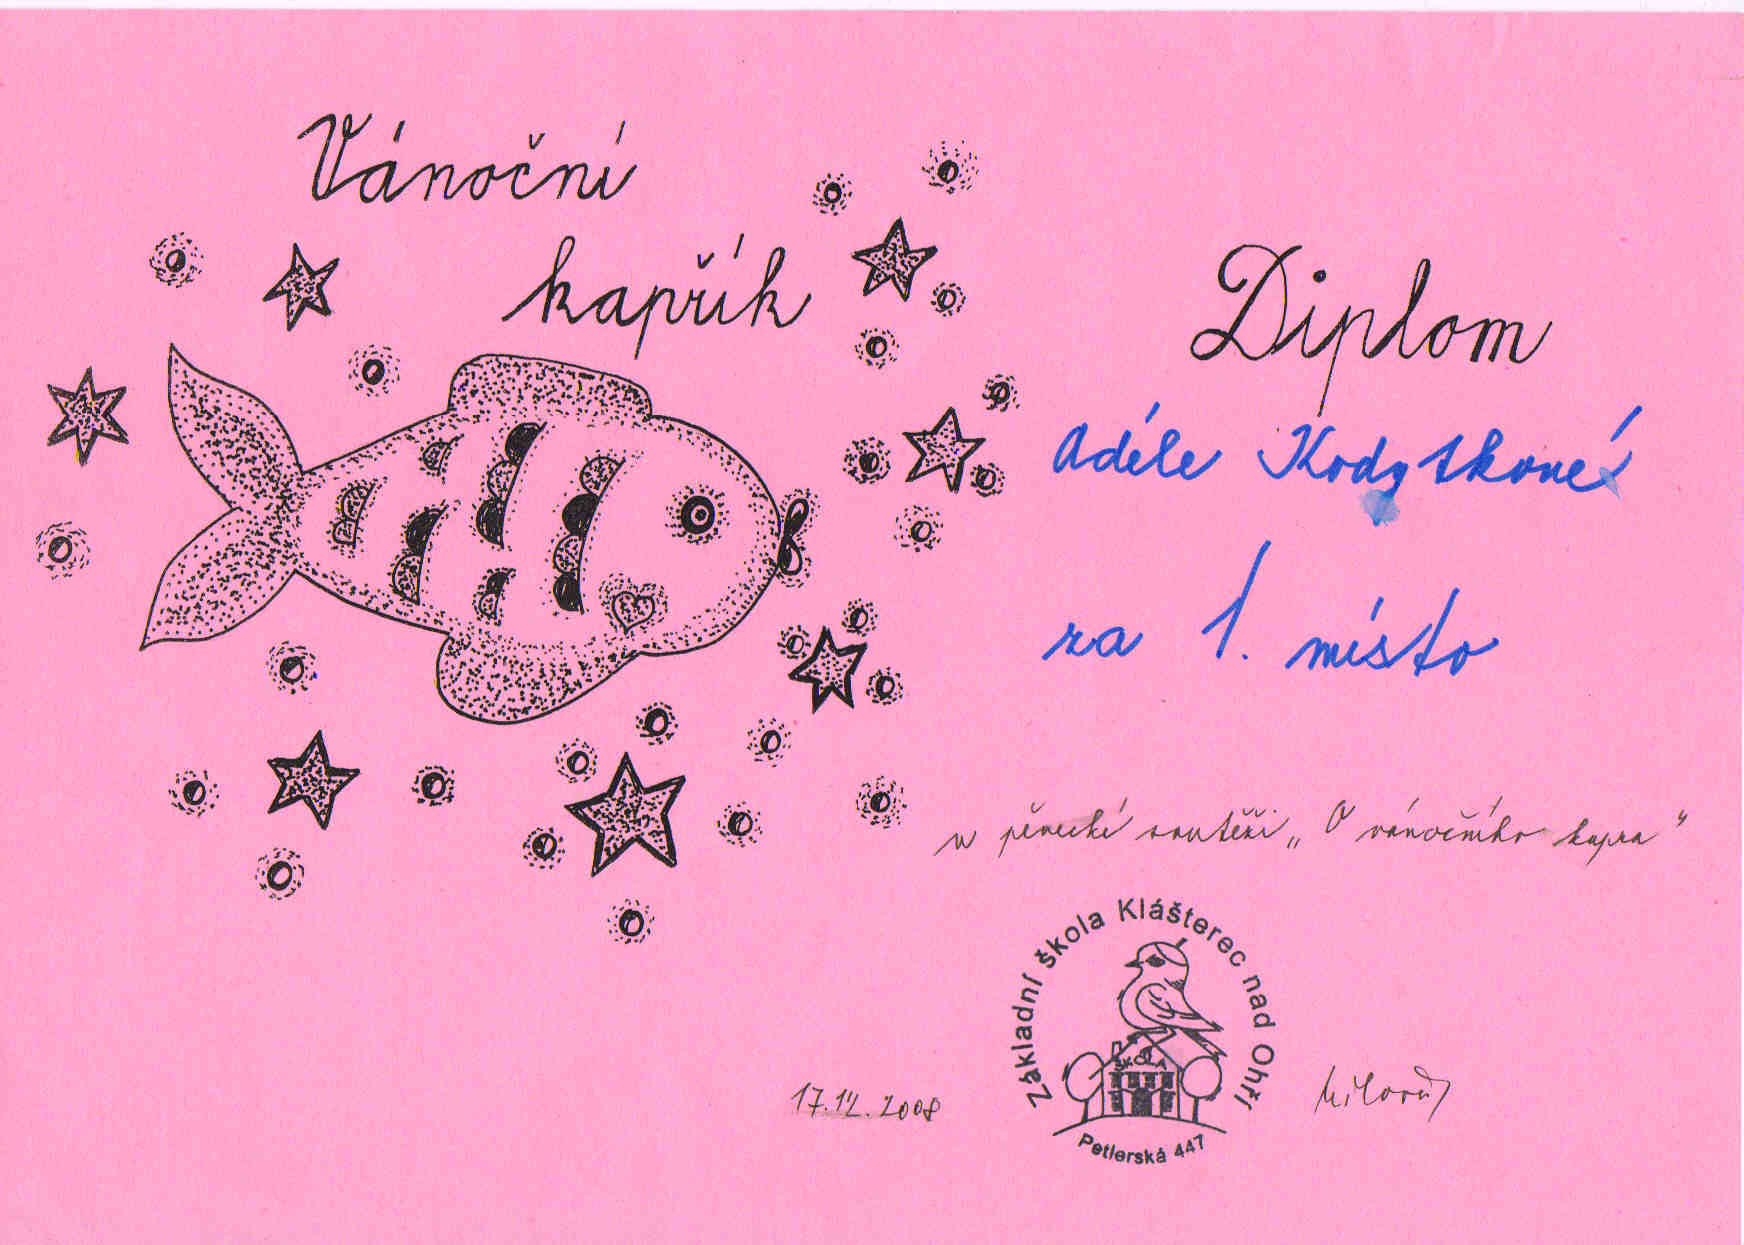 Vánoční
kapřík
Diplom
Adéle Kodytkové
za 1. místo
v pěvecké soutěži „O vánočního kapra“
Základní škola Klášterec nad Ohří
ŠKOLA
Petlerská 447
17.12.2008